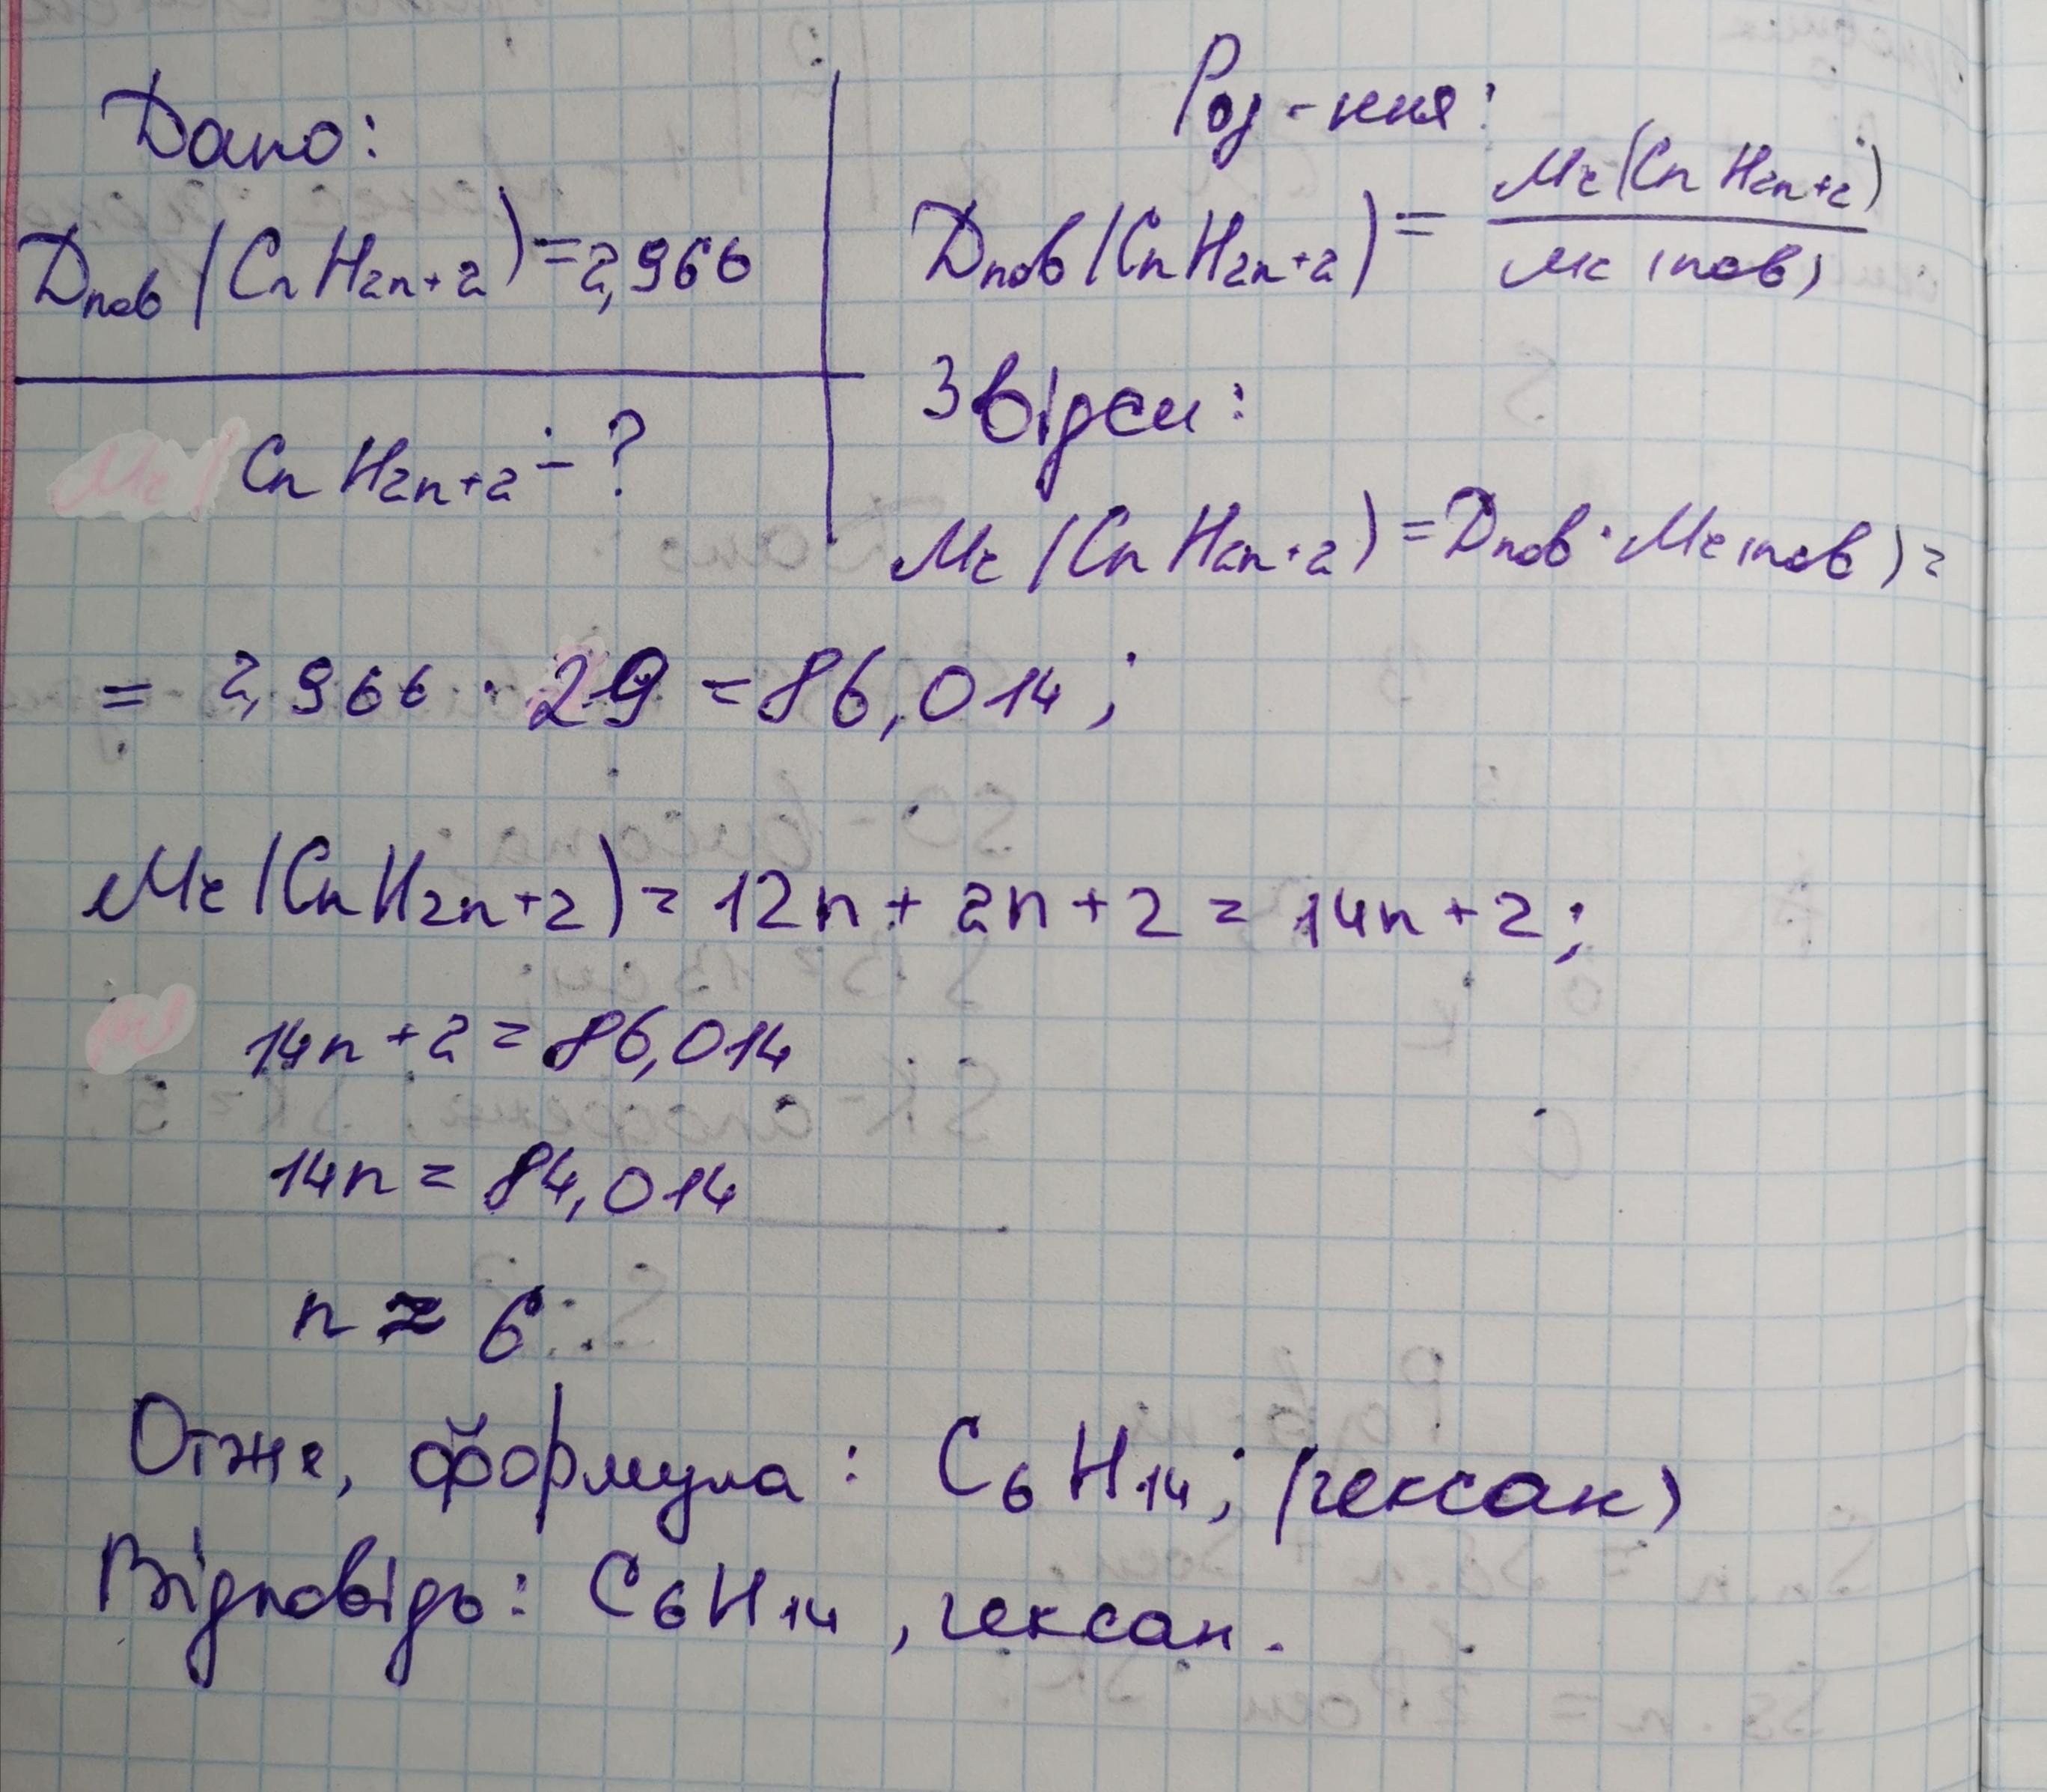 Дано:
Dпов(CnH2n+2)=2,966
CnH2n+2 - ?
Роз-ння:
Dпов(CnH2n+2) = Mr(CnH2n+2) / Mr(пов)
Звідси:
Mr(CnH2n+2) = Dпов · Mr(пов) =
= 2,966 · 29 = 86,014;
Mr(CnH2n+2) = 12n + 2n + 2 = 14n + 2;
14n + 2 = 86,014
14n = 84,014
n ≈ 6
Отже, формула: C6H14; (гексан)
Відповідь: C6H14, гексан.